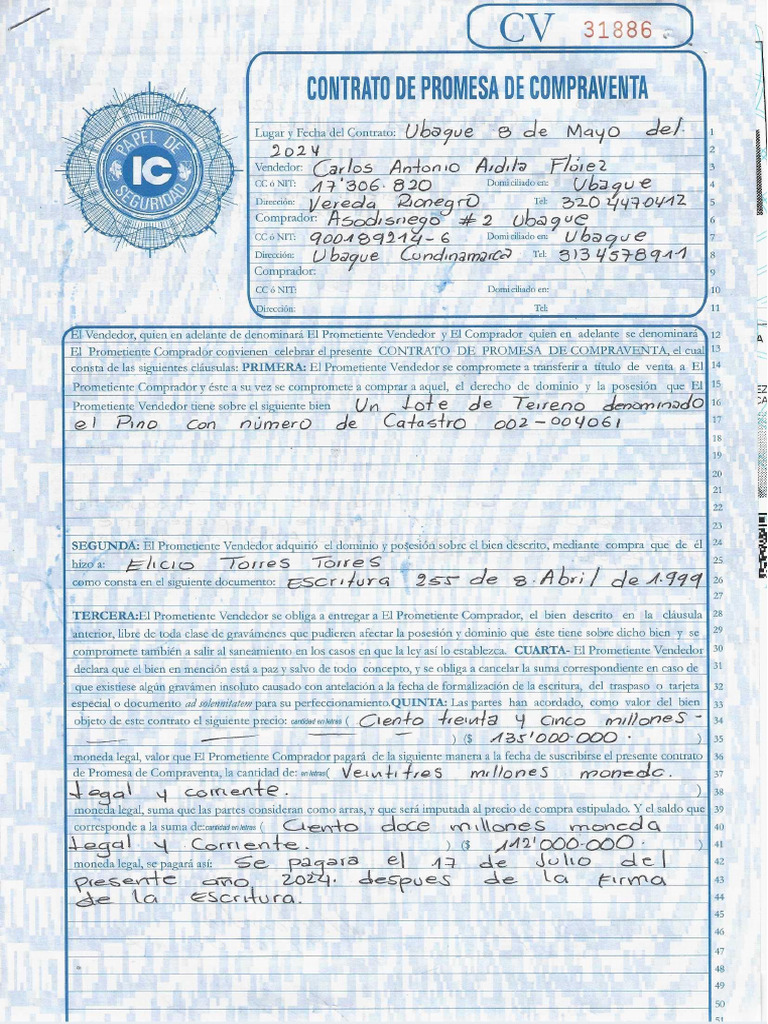 CV 31886
CONTRATO DE PROMESA DE COMPRAVENTA
PAPEL DE
IC
SEGURIDAD
Lugar y Fecha del Contrato: Ubaque 8 de Mayo del. 1
2024 2
Vendedor: Carlos Antonio Ardila Flórez 3
CC ó NIT: 17'306.820 Domiciliado en: Ubaque 4
Dirección: Vereda Rionegro Tel: 320 4470412 5
Comprador: Asodisriego #2 Ubaque 6
CC ó NIT: 900189214-6 Domiciliado en: Ubaque 7
Dirección: Ubaque Cundinamarca Tel: 3134578911 8
Comprador: 9
CC ó NIT: Domiciliado en: 10
Dirección: Tel: 11
El Vendedor, quien en adelante de denominará El Prometiente Vendedor y El Comprador quien en adelante se denominará 12
El Prometiente Comprador convienen celebrar el presente CONTRATO DE PROMESA DE COMPRAVENTA, el cual 13
consta de las siguientes cláusulas: PRIMERA: El Prometiente Vendedor se compromete a transferir a título de venta a El 14
Prometiente Comprador y éste a su vez se compromete a comprar a aquel, el derecho de dominio y la posesión que El 15
Prometiente Vendedor tiene sobre el siguiente bien Un Lote de Terreno denominado 16
el Pino con número de Catastro 002-004061 17
18
19
20
21
22
23
SEGUNDA: El Prometiente Vendedor adquirió el dominio y posesión sobre el bien descrito, mediante compra que de él 24
hizo a: Elicio Torres Torres 25
como consta en el siguiente documento: Escritura 255 de 8. Abril de 1.999 26
27
TERCERA:El Prometiente Vendedor se obliga a entregar a El Prometiente Comprador, el bien descrito en la cláusula 28
anterior, libre de toda clase de gravámenes que pudieren afectar la posesión y dominio que éste tiene sobre dicho bien y se 29
compromete también a salir al saneamiento en los casos en que la ley así lo establezca. CUARTA- El Prometiente Vendedor 30
declara que el bien en mención está a paz y salvo de todo concepto, y se obliga a cancelar la suma correspondiente en caso de 31
que existiese algún gravámen insoluto causado con antelación a la fecha de formalización de la escritura, del traspaso o tarjeta 32
especial o documento ad solemnitatem para su perfeccionamiento.QUINTA: Las partes han acordado, como valor del bien 33
objeto de este contrato el siguiente precio: cantidad en letras ( Ciento treinta y cinco millones - 34
— — — ) ($ 135'000.000. ) 35
moneda legal, valor que El Prometiente Comprador pagará de la siguiente manera a la fecha de suscribirse el presente contrato 36
de Promesa de Compraventa, la cantidad de: en letras ( Veintitres millones moneda. 37
Legal y corriente. ) 38
moneda legal, suma que las partes consideran como arras, y que será imputada al precio de compra estipulado. Y el saldo que 39
corresponde a la suma de:cantidad en letras ( Ciento doce millones moneda 40
Legal y Corriente. ) ($ 112'000.000. ) 41
moneda legal, se pagará así: Se pagara el 17 de Julio del 42
presente año 2024. despues de la Firma 43
de la Escritura. 44
45
46
47
48
49
50
51